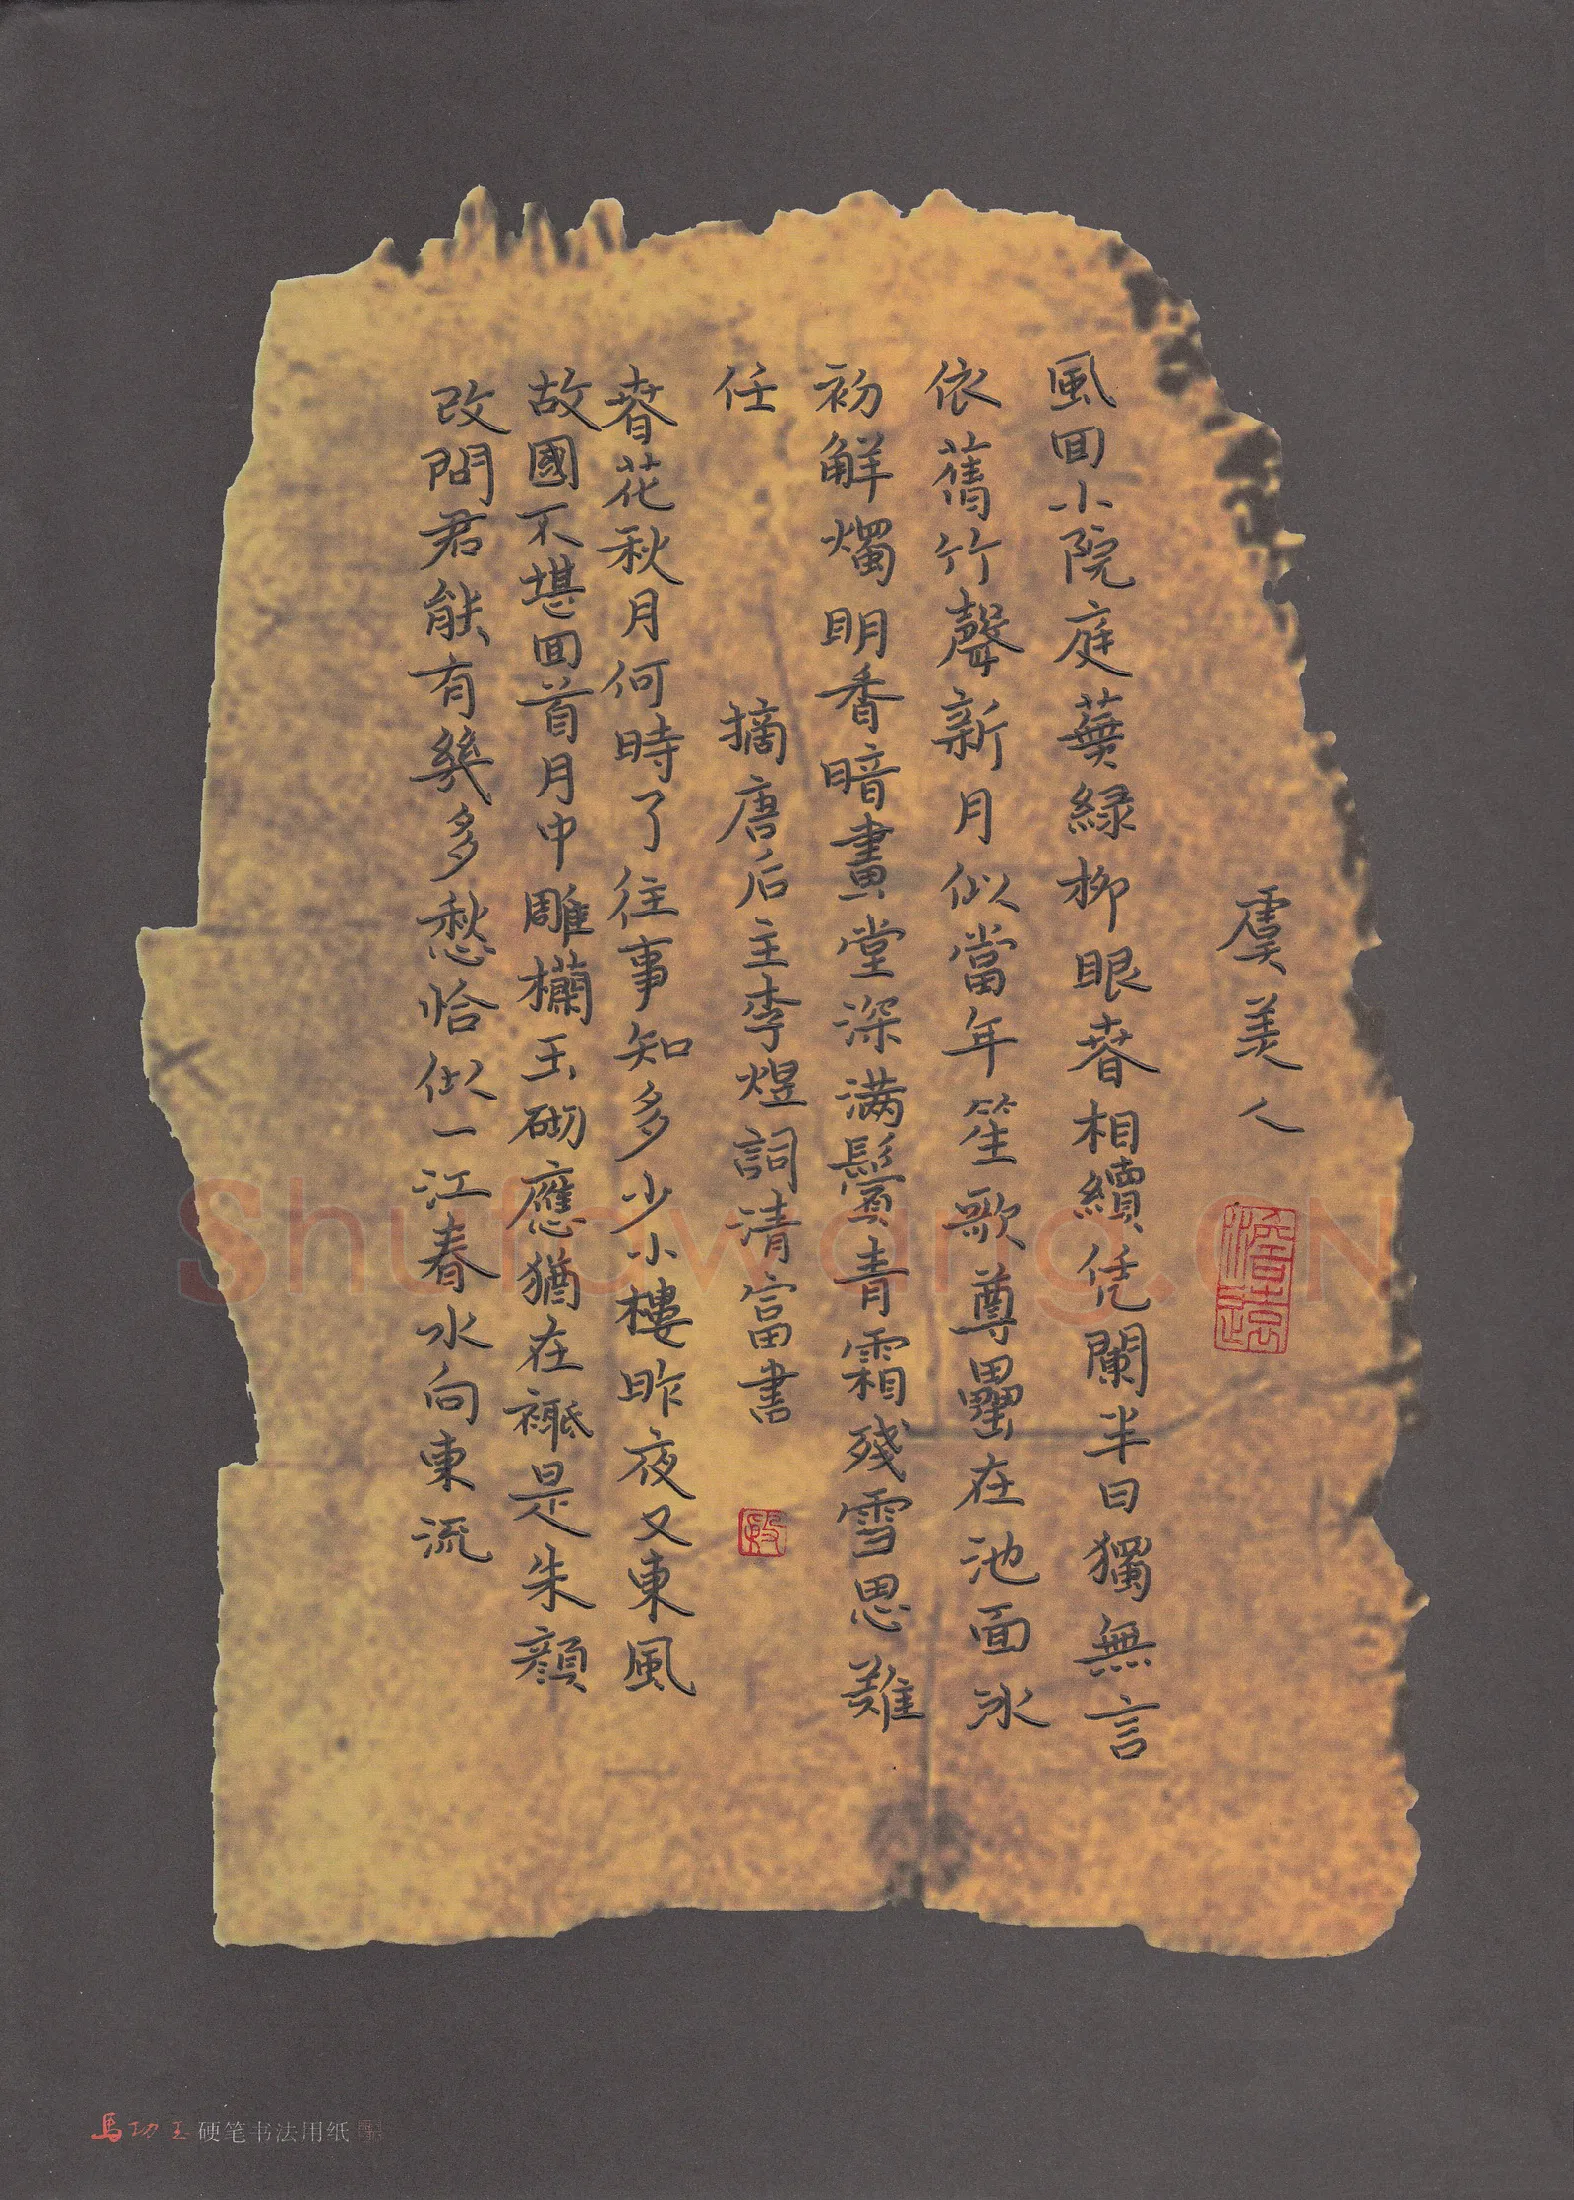 虞美人
風回小院庭蕪綠柳眼春相續凭闌半日獨無言
依舊竹聲新月似當年笙歌尊罍在池面冰
初解燭明香暗畫堂深滿鬢青霜殘雪思難
任
摘唐后主李煜詞清富書
春花秋月何時了往事知多少小樓昨夜又東風
故國不堪回首月中雕欄玉砌應猶在祗是朱顏
改問君能有幾多愁恰似一江春水向東流
Shufawang.CN
馬功王硬笔书法用纸